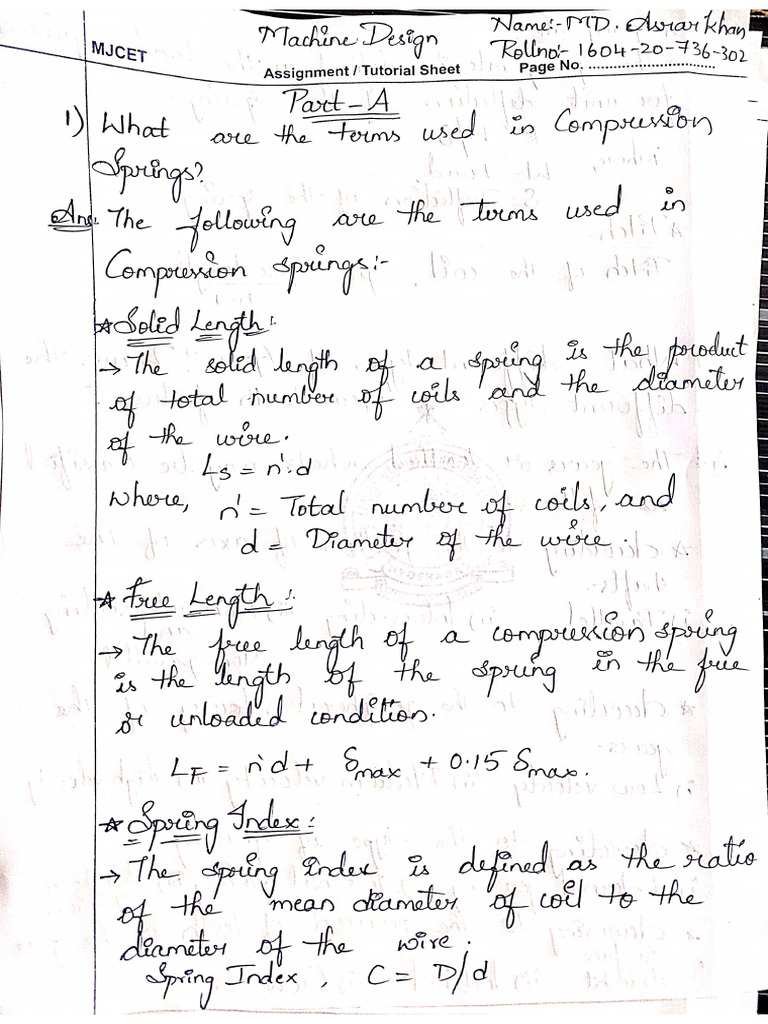 MJCET
Machine Design
Name:- MD. Asrar khan
Rollno:- 1604-20-736-302
Assignment / Tutorial Sheet
Page No. ..............................
Part-A
1) What are the terms used in Compression
Springs?
Ans: The following are the terms used in
Compression springs:-
* Solid Length:
→ The solid length of a spring is the product
of total number of coils and the diameter
of the wire.
Ls = n'.d
where, n' = Total number of coils, and
d = Diameter of the wire.
* Free Length:
→ The free length of a compression spring
is the length of the spring in the free
or unloaded condition.
LF = n'd + δmax + 0.15 δmax.
* Spring Index:
→ The spring index is defined as the ratio
of the mean diameter of coil to the
diameter of the wire.
Spring Index, C = D/d